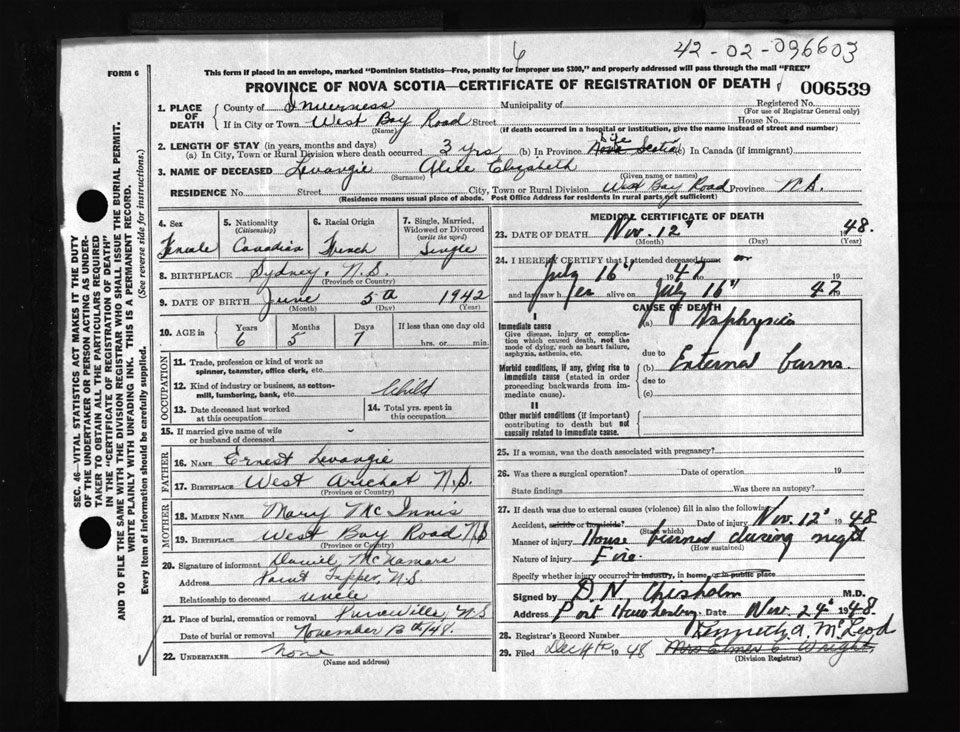 6
42-02-096603
FORM 6
This form if placed in an envelope, marked "Dominion Statistics—Free, penalty for improper use $300," and properly addressed will pass through the mail "FREE"
PROVINCE OF NOVA SCOTIA—CERTIFICATE OF REGISTRATION OF DEATH 006539
1. PLACE OF DEATH County of Inverness Municipality of Registered No. (For use of Registrar General only)
If in City or Town West Bay Road Street House No.
(Name) (If death occurred in a hospital or institution, give the name instead of street and number)
2. LENGTH OF STAY (in years, months and days)
(a) In City, Town or Rural Division where death occurred 3 yrs (b) In Province Life Nova Scotia (c) In Canada (if immigrant)
3. NAME OF DECEASED Levangie Alice Elizabeth
(Surname) (Given name or names)
RESIDENCE No. Street City, Town or Rural Division West Bay Road Province N.S.
(Residence means usual place of abode. Post Office Address for residents in rural parts not sufficient)
4. Sex Female
5. Nationality (Citizenship) Canadian
6. Racial Origin French
7. Single, Married, Widowed or Divorced (write the word) Single
8. BIRTHPLACE Sydney, N.S.
(Province or Country)
9. DATE OF BIRTH June 5th 1942
(Month) (Day) (Year)
10. AGE in Years Months Days If less than one day old
6 5 7 hrs. or min.
OCCUPATION
11. Trade, profession or kind of work as spinner, teamster, office clerk, etc.
12. Kind of industry or business, as cotton-mill, lumbering, bank, etc. Child
13. Date deceased last worked at this occupation
14. Total yrs. spent in this occupation
15. If married give name of wife or husband of deceased -
FATHER
16. NAME Ernest Levangie
17. BIRTHPLACE West Arichat N.S.
(Province or Country)
MOTHER
18. MAIDEN NAME Mary McInnis
19. BIRTHPLACE West Bay Road N.S
(Province or Country)
20. Signature of informant Daniel McNamara
Address Point Tupper, N.S.
Relationship to deceased uncle
21. Place of burial, cremation or removal Princeville, N.S
Date of burial or removal November 13th/48.
22. UNDERTAKER None
(Name and address)
MEDICAL CERTIFICATE OF DEATH
23. DATE OF DEATH Nov. 12" 48.
(Month) (Day) (Year)
24. I HEREBY CERTIFY that I attended deceased from on
July 16" 1947 to 19
and last saw her alive on July 16" 47 19
CAUSE OF DEATH
I
Immediate cause
Give disease, injury or complication which caused death, not the mode of dying, such as heart failure, asphyxia, asthenia, etc.
(a) Asphyxia
due to
Morbid conditions, if any, giving rise to immediate cause (stated in order proceeding backwards from immediate cause).
(b) External burns.
due to
(c)
II
Other morbid conditions (if important) contributing to death but not causally related to immediate cause.
25. If a woman, was the death associated with pregnancy?
26. Was there a surgical operation? Date of operation 19
State findings Was there an autopsy?
27. If death was due to external causes (violence) fill in also the following:
Accident, suicide or homicide? Date of injury Nov. 12" 1948
(State which)
Manner of injury House burned during night
(How sustained)
Nature of injury Fire.
Specify whether injury occurred in industry, in home, or in public place
Signed by D. N. Chisholm M.D.
Address Port Hawkesbury. Date Nov. 24" 1948.
28. Registrar's Record Number Kenneth A. McLeod
29. Filed Dec 4th 1948 Mrs Elmer C. Wright,
(Division Registrar)
SEC. 46—VITAL STATISTICS ACT MAKES IT THE DUTY OF THE UNDERTAKER OR PERSON ACTING AS UNDERTAKER TO OBTAIN ALL THE PARTICULARS REQUIRED IN THE "CERTIFICATE OF REGISTRATION OF DEATH" AND TO FILE THE SAME WITH THE DIVISION REGISTRAR WHO SHALL ISSUE THE BURIAL PERMIT.
WRITE PLAINLY WITH UNFADING INK. THIS IS A PERMANENT RECORD.
Every item of information should be carefully supplied. (See reverse side for instructions.)